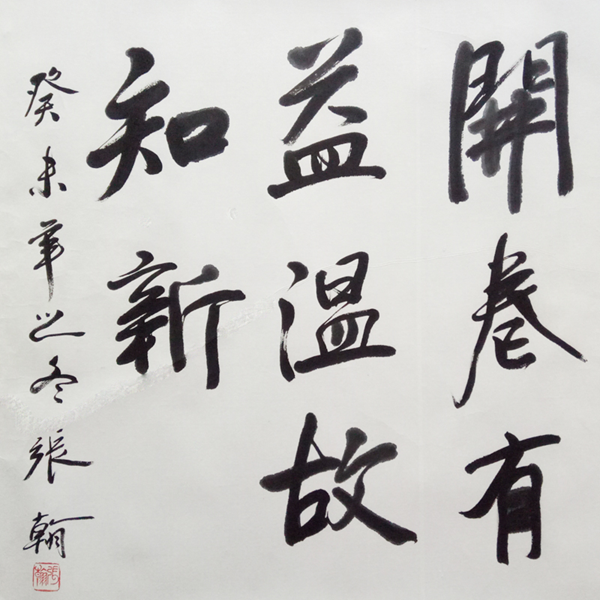 開卷有
益溫故
知新
癸未年之冬張翰